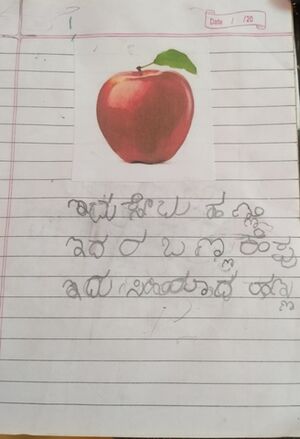 Date / /20
ಇದು ಸೇಬು ಹಣ್ಣು
ಇದರ ಬಣ್ಣ ಕೆಂಪು
ಇದು ಸಿಹಿಯಾದ ಹಣ್ಣು